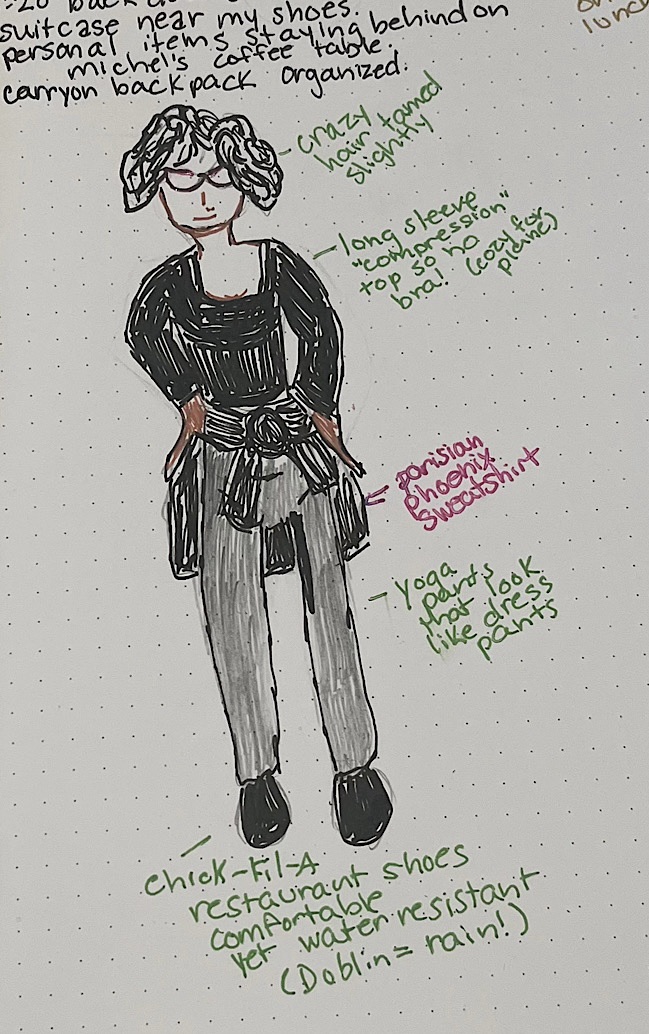 :20 back
suitcase near my shoes.
personal items staying behind on
michel's coffee table.
carryon backpack organized.
lunch
crazy
hair tamed
slightly
long sleeve
"compression"
top so no
bra! (cozy for
plane)
parisian
phoenix
sweatshirt
yoga
pants
that look
like dress
pants
chick-Fil-A
restaurant shoes
comfortable
yet water resistant
(Doblin = rain!)